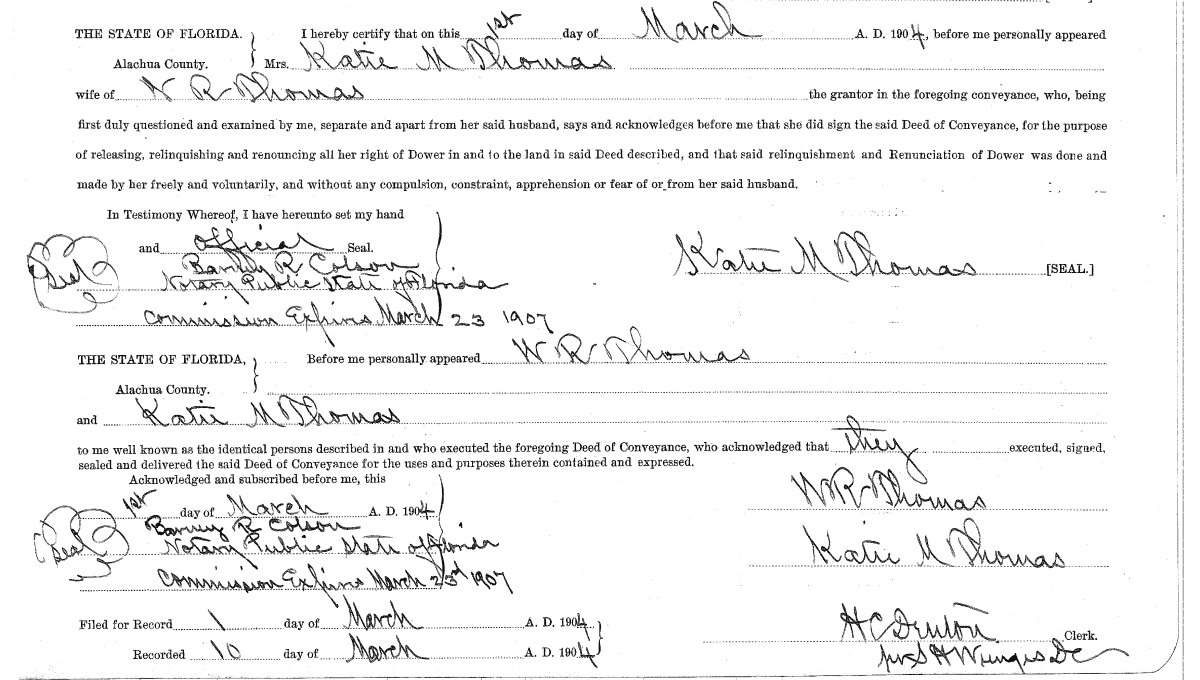 THE STATE OF FLORIDA. I hereby certify that on this 1st day of March A. D. 1904, before me personally appeared
Alachua County. Mrs. Katie M Thomas
wife of W R Thomas the grantor in the foregoing conveyance, who, being
first duly questioned and examined by me, separate and apart from her said husband, says and acknowledges before me that she did sign the said Deed of Conveyance, for the purpose
of releasing, relinquishing and renouncing all her right of Dower in and to the land in said Deed described, and that said relinquishment and Renunciation of Dower was done and
made by her freely and voluntarily, and without any compulsion, constraint, apprehension or fear of or from her said husband.
In Testimony Whereof, I have hereunto set my hand
and official Seal.
Seal Barney R Colson Katie M Thomas [SEAL.]
Notary Public State of Florida
Commission Expires March 23 1907
THE STATE OF FLORIDA, Before me personally appeared W R Thomas
Alachua County.
and Katie M Thomas
to me well known as the identical persons described in and who executed the foregoing Deed of Conveyance, who acknowledged that they executed, signed,
sealed and delivered the said Deed of Conveyance for the uses and purposes therein contained and expressed.
Acknowledged and subscribed before me, this
1st day of March A. D. 1904 W R Thomas
Seal Barney R Colson
Notary Public State of Florida Katie M Thomas
Commission Expires March 23d 1907
Filed for Record 1 day of March A. D. 1904 H C Denton Clerk.
Recorded 10 day of March A. D. 1904 DC